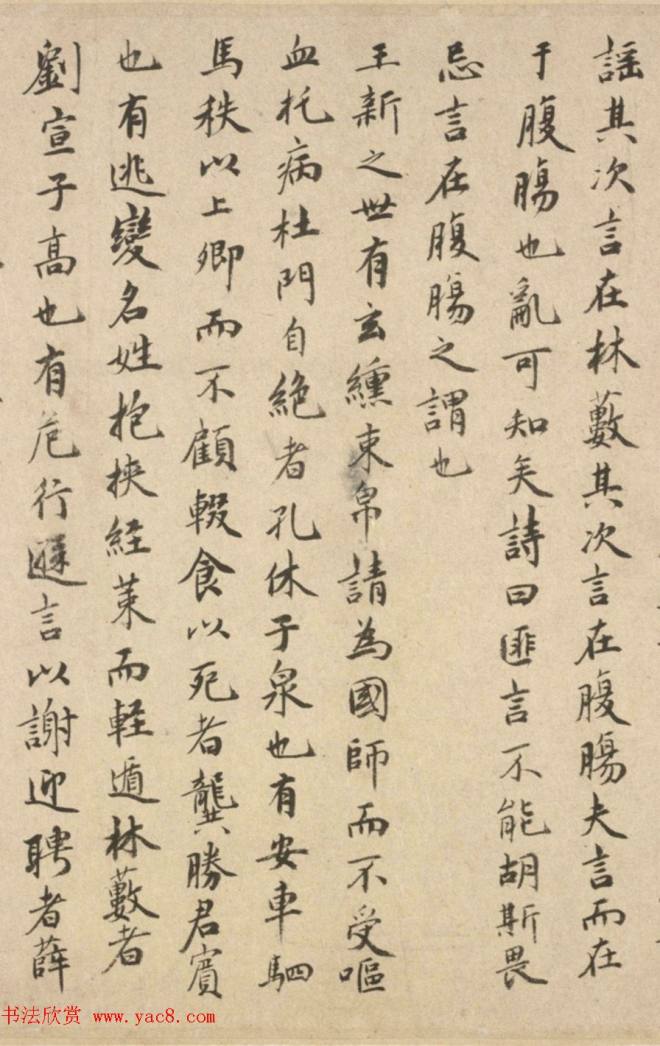 謡其次言在林藪其次言在腹腸夫言而在
于腹腸也亂可知矣詩曰匪言不能胡斯畏
忌言在腹腸之謂也
王新之世有玄纁束帛請為國師而不受嘔
血托病杜門自絶者孔休子泉也有安車駟
馬秩以上卿而不顧輟食以死者龔勝君賓
也有逃變名姓抱挾経策而軽遁林藪者
劉宣子高也有危行遜言以謝迎聘者薛
书法欣赏 www.yac8.com